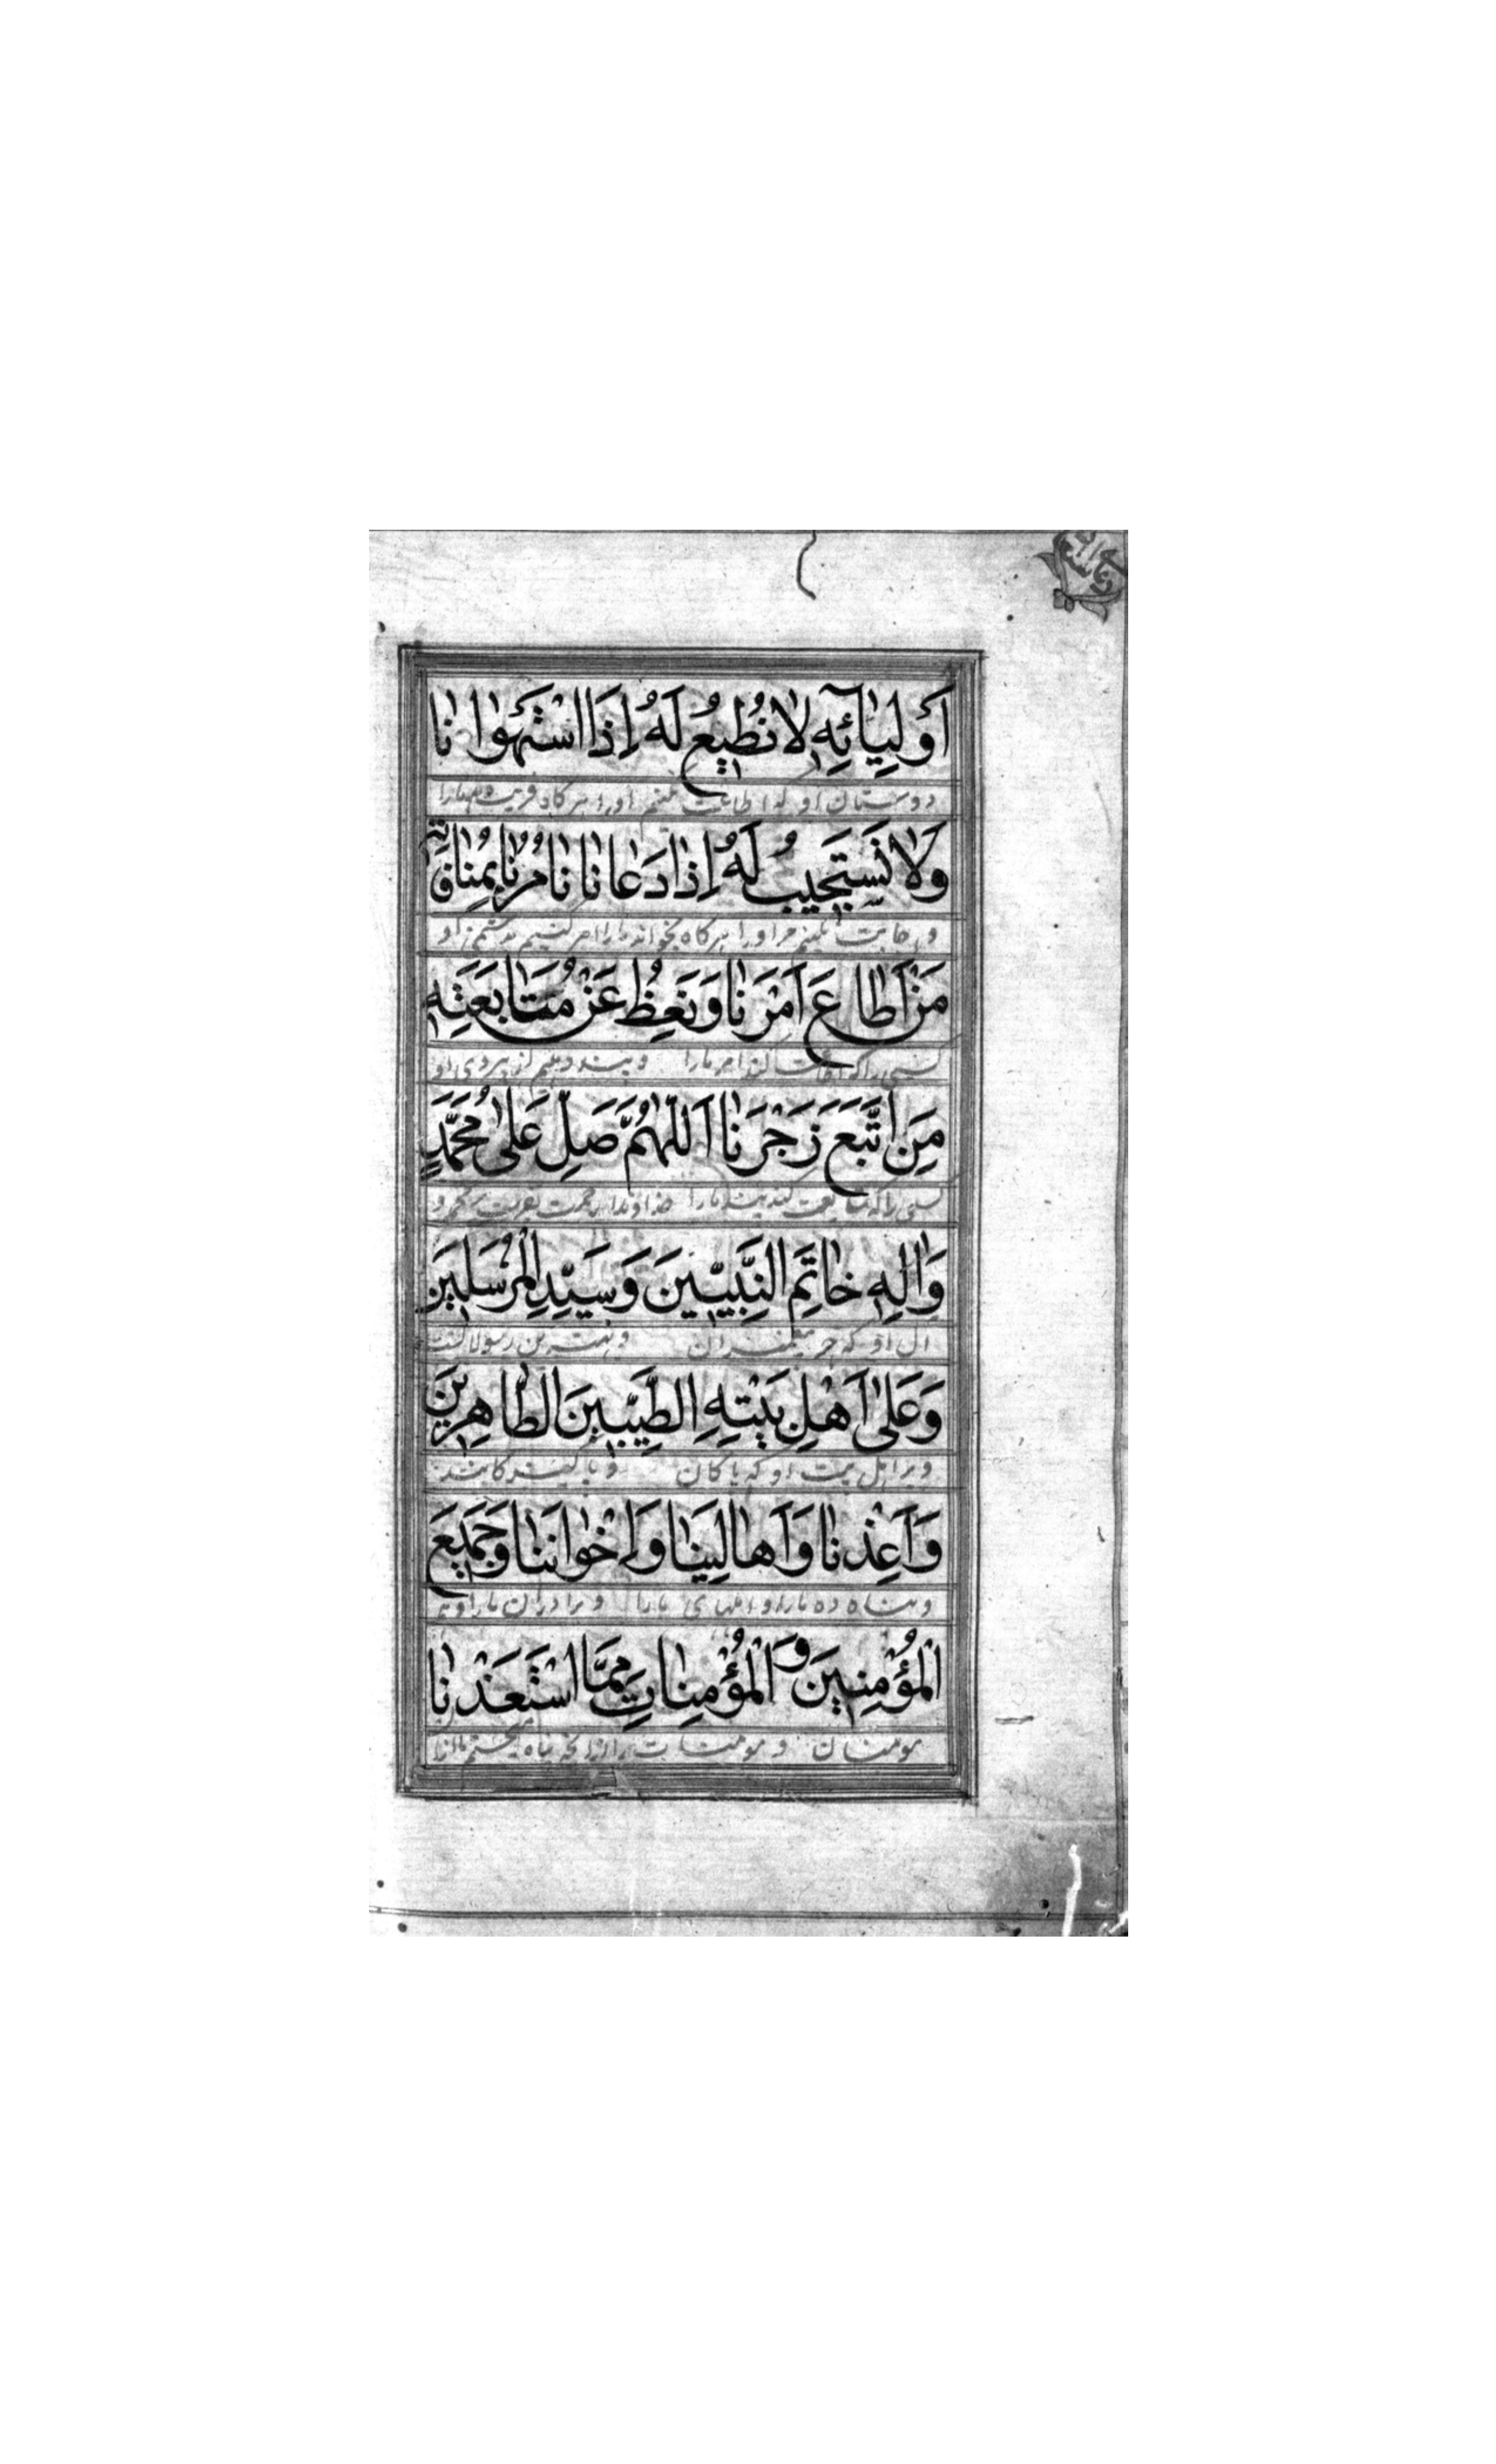 اَوْلِیٰائِهِ لاٰ نُطیٖعُ لَهُ اِذَا اسْتَهْوٰانٰا
دوستان او که اطاعت نکنیم او را هر گاه فریب دهد ما را
وَلاٰ نَسْتَجیٖبُ لَهُ اِذٰا دَعٰانٰا نَامُرُنٰا بِمُنٰاوَتِهِ
و اجابت نکنیم مر او را هر گاه بخواند ما را امر کنیم بدشمنی او
مَنْ اَطٰاعَ اَمْرَنٰا وَنَعِظُ عَنْ مُتٰابَعَتِهِ
کسی را که اطاعت کند امر ما را و پند دهیم از پیروی او
مَنِ اتَّبَعَ زَجْرَنٰا اَللّٰهُمَّ صَلِّ عَلیٰ مُحَمَّدٍ
کسی را که متابعت کند پند ما را خداوندا رحمت بفرست بر محمد و
وَاٰلِهِ خٰاتَمِ النَّبِیّیٖنَ وَسَیِّدِ الْمُرْسَلیٖنَ
ال او که پیغمبران و بهترین رسولانست
وَعَلیٰ اَهْلِ بَیْتِهِ الطَّیِّبیٖنَ الطّٰاهِریٖنَ
و بر اهل بیت او که پاکان و پاکیزگانند
وَاَعِذْنٰا وَاَهٰالِیَنٰا وَاِخْوٰانَنٰا وَجَمیٖعَ
و پناه ده ما را و اهلهای ما را و برادران ما را و همه
الْمُؤْمِنیٖنَ وَ الْمُؤْمِنٰاتِ مِمَّا اسْتَعَذْنٰا
مومنان و مومنات را از انچه پناه میجستیم ما از ان